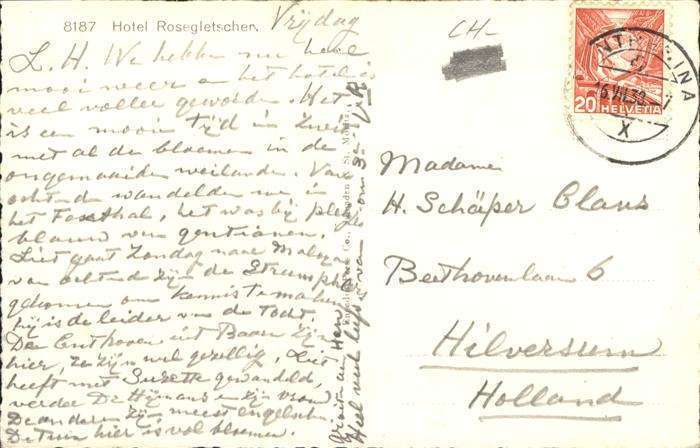 8187 Hotel Rosegletscher.
Vrijdag
CH-
L. H. We hebben nu heel
mooi weer en het hotel is
veel voller geworden. Het
is een mooie tijd in
met al de bloemen in de
ongemaaide weilanden. Van
ochtend wandelden we in
het Foxthal, het was bij
blauw van gentianen.
Liet gaat Zondag naar Maloja
van ochtend zijn de
gekomen om kennis te maken
hij is de leider van de tocht.
De Enthoven uit Baarn zijn
hier, ze zijn wel gezellig, Liet
heeft met Suzette gewandeld,
verder De Hijmans en zijn vrouw
De anderen zijn meest Engelsch
De tuin hier is vol bloemen.
Heel veel liefs van
St. Moritz
20 HELVETIA
Madame
H. Schäper Claus
Beethovenlaan 6
Hilversum
Holland